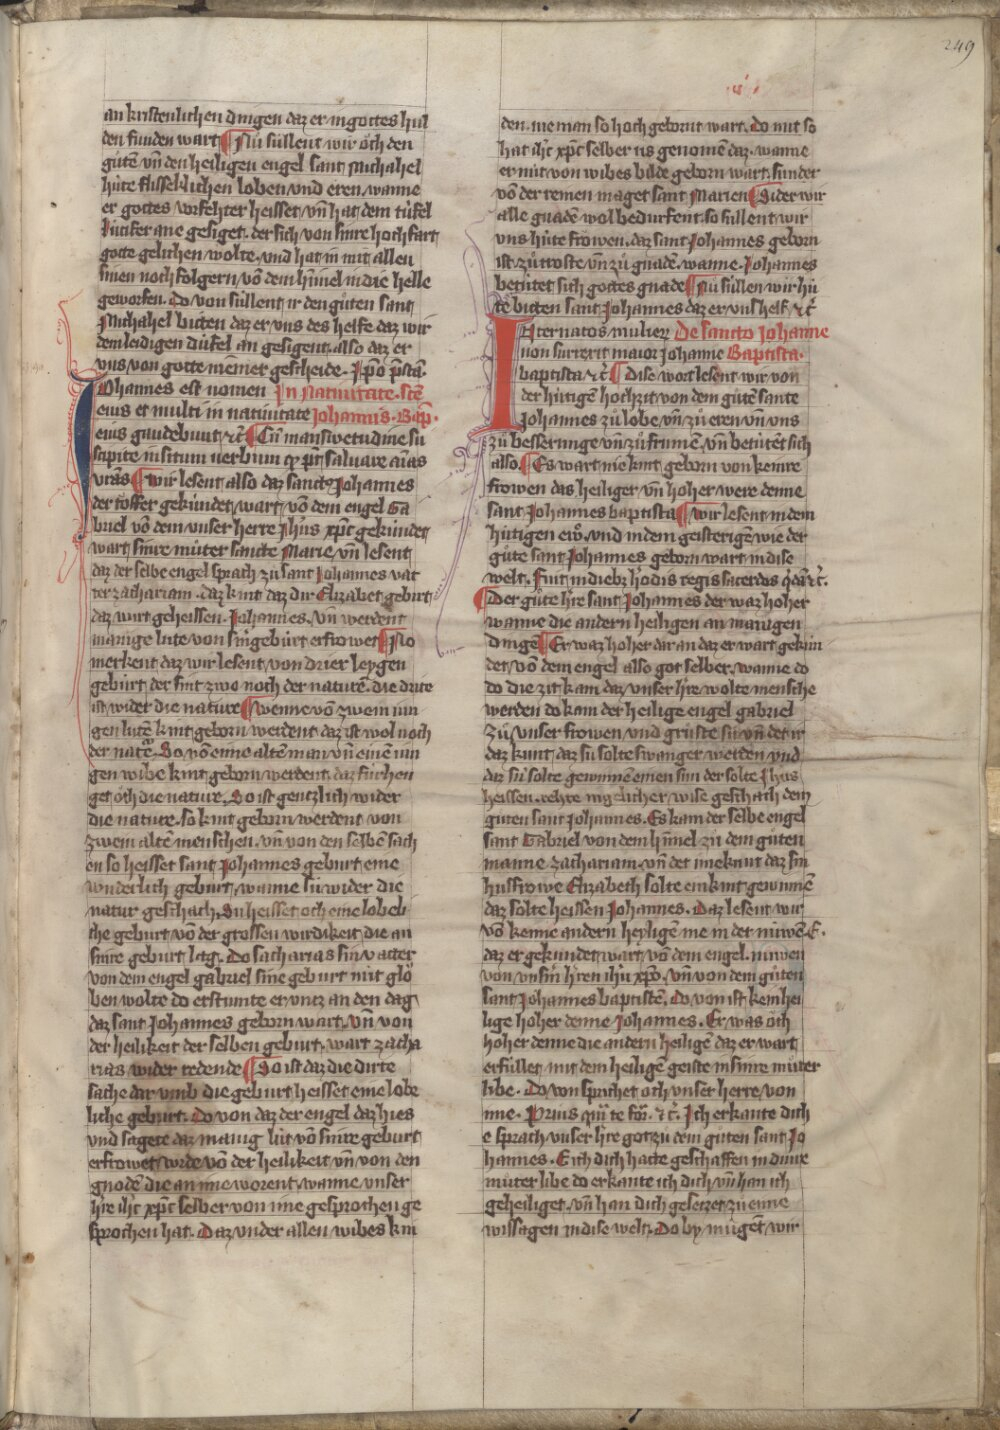 249
an kristenlichen dingen daz er in gottes hul
den funden wart ¶ Nu süllent wir och den
güten vn̄ den heiligen engel sant Michahel
hüte flisseklichen loben vnd eren, wanne
er gottes vorfehter heisset vn̄ hat dem tüfel
Lucifer ane gesiget. der sich von sinre hochfart
gotte gelichen wolte. vnd hat in mit allen
sinen nochfolgern vō dem himel in die helle
geworfen. Do von süllent ir den gůten sant
Michahel bitten daz er vns des helfe daz wir
dem leidigen düfel an gesigent. also daz er
vns von gotte niemer gescheide.
Johannes est nomen In Natiuitate. scē
eius et multi in natiuitate Johannis. Bap̄.
eius gaudebunt ⁊c̄ ¶ Cū mansuetudine su
scipite insitum uerbum
vrās ¶ Wir lesent also daz sanctus Johannes
der töffer gekündet wart, vō dem engel Ga
briel vō dem vnser herre Jhus xp̄c gekündet
wart sinre můter sancte Marie. vn̄ lesent
daz der selbe engel sprach zů sant Johannes vat
ter zachariam. daz kint daz dir Elizabet gebirt
daz wirt geheissen. Johannes, vn̄ werdent
manige lüte von sin gebürt erfrowet ¶ No
merkent daz wir lesent, von drier leygen
gebürt der sint zwo noch der naturē. die drite
ist wider die nature ¶ wenne vō zwein iun
gen lutē kint geborn werdent daz ist wol noch
der natē. So vō eime altē man vn̄ einē iun
gen wibe kint geborn werdent, daz fürhen
get och die nature, So ist gentzlich wider
die nature. so kint geborn werdent von
zwein altē menschen. vn̄ von den selbē sach
en so heisset sant Johannes geburt eine
wnderlich geburt, wanne sü wider die
natur geschach. Su heisset och eine lobeli
che geburt vō der grossen wirdikeit die an
sinre geburt litg. Do sacharias sin vatter
von dem engel gabriel sine geburt nüt glö
ben wolte do erstumte er vntz an den dag
daz sant Johannes geborn wart. vn̄ von
der heilikeit der selben geburt. wart zacha
rias wider redende ¶ So ist daz die dirte
sache dar vmb die geburt heisset eine lobe
liche geburt. Do von daz der engel daz hies
vnd sagete daz manig lüt vō sinre geburt
erfrowet wrde vō der heilikeit vn̄ von den
gnodē die an ime worent, wanne vnser
hre ihc xp̄c selber von ime gesprochen ge
sprochen hat. Daz vnder allen wibes kin
den. nieman so hoch geborn wart. Do mit so
hat ihc xp̄c selber us genomē daz. wanne
er nüt von wibes bilde geborn wart. sunder
vō der reinen maget sant Marien ¶ Sider wir
alle gnadē wol bedurfent. so süllent wir
vns hüte frowen. daz sant Johannes geborn
ist. zů troste vn̄ zů gnadē. wanne. Johannes
betütet sich gottes gnade ¶ Nü süllen wir hü
te bitten sant Johannes daz er vns helf ⁊c̄
Inter natos mulierz De sancto Johanne
non surrexit maior Johanne Baptista.
baptista ⁊c̄ ¶ Dise wort lesent wir von
der hütigē hochzit von dem gütē sante
Johannes zů lobe vn̄ zů eren vn̄ vns
zů besserunge vn̄ zů frumē. vn̄ betütēt sich
also ¶ Es wart nie kint geborn von keinre
frowen das heiliger vn̄ hoher were denne
sant Johannes baptista ¶ wir lesent in dem
hütigen ewā. vnd in dem gesterigēn wie der
gůte sant Johannes geborn wart in dise
welt. Fuit in diebz hodis regis sacerdos q̄dā ⁊c̄.
¶ Der gůte hre sant Johannes der waz hoher
wanne die andern heiligen an manigen
dinge ¶ Er waz hoher dar an daz er wart gekün
det, vō dem engel also got selber. wanne do
do die zit kam daz vnser hre wolte mensche
werden do kam der heilige engel gabriel
zů vnser frowen vnd grüste sü vn̄ det ir
daz kunt, daz sü solte swanger werden vnd
daz sü solte gewinnē einen sun der solte Jhus
heissen. rehte in gelicher wise geschach dem
guten sant Johannes. Es kam der selbe engel
sant Gabriel von dem himel zů dem gůten
manne zachariam. vn̄ det ime kunt daz sin
husfrowe Elizabeth solte ein kint gewinnē
daz solte heissen Johannes. Daz lesent wir
vō keime andern heyligē me in der nüwē E.
daz er gekündet wart, vō dem engel. nuwen
von vnsm hren ihu xp̄o. vn̄ von dem gůten
sant Johannes baptistē. Do von ist kein hei
lige hoher denne Johannes. Er was och
hoher denne die andern heiligē daz er wart
erfüllet mit dem heiligē geiste in sinre můter
libe. Do von sprichet och vnser herre, von
ime. Prius qm̄ te for̄. ⁊c̄. Ich erkante dich
e sprach vnser hre got zů dem guten sant Jo
hannes. E ich dich hatte geschaffen in dinre
můter libe do erkante ich dich vn̄ han ich
geheiliget, vn̄ han dich gesetzet zů eime
wissagen in dise welt. Do by mügēt wir